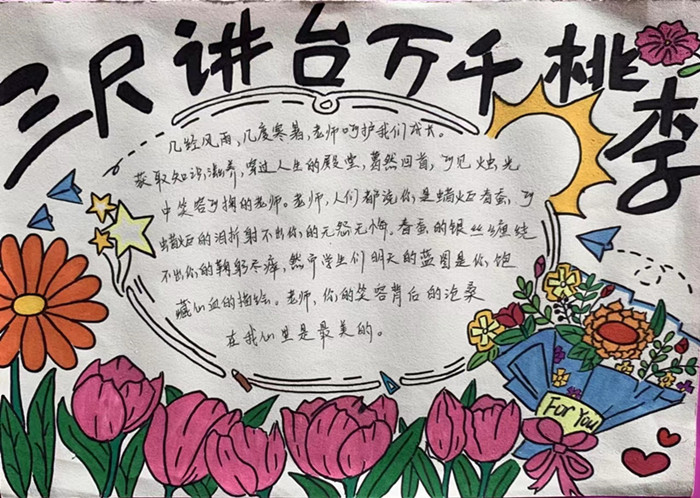 三尺讲台万千桃李
几经风雨,几度寒暑,老师呵护我们成长。
获取知识,滋养,穿过人生的殿堂,蓦然回首,可见烛光
中笑容可掬的老师。老师,人们都说你是蜡炬春蚕,可
蜡炬的泪折射不出你的无怨无悔。春蚕的银丝缠绕
不出你的鞠躬尽瘁,然而学生们明天的蓝图是你饱
藏心血的描绘。老师,你的笑容背后的沧桑
在我心里是最美的。
For You